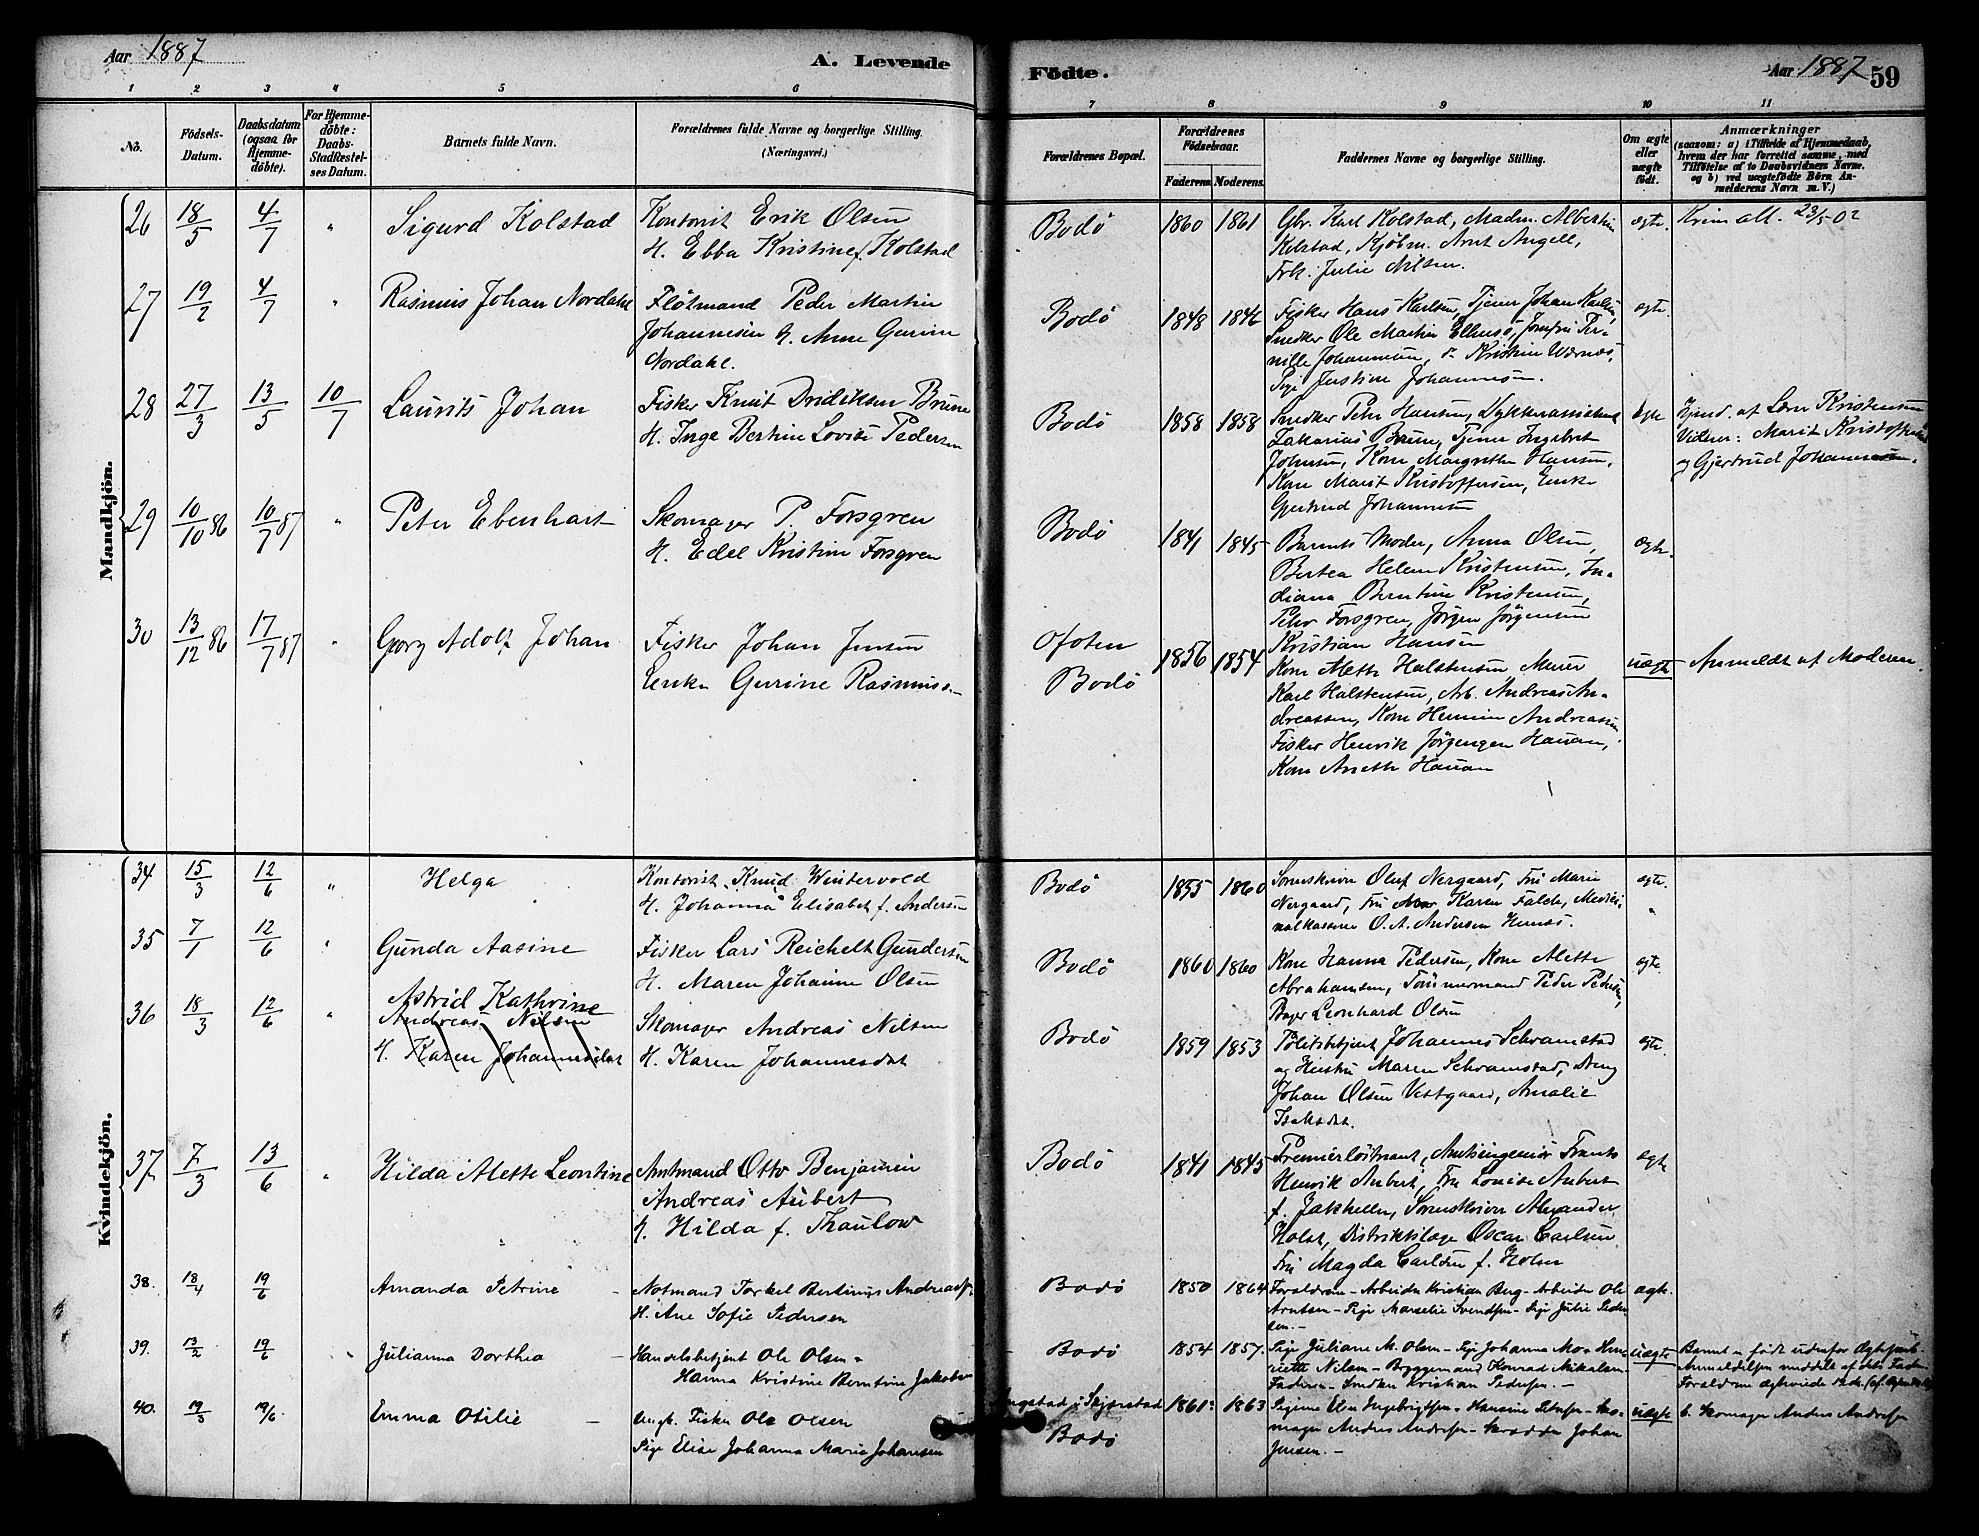 Aar 1887
A. Levende
Födte.
Aar 1887 59
1 2 3 4 5 6 7 8 9 10 11
No.
Födsels-Datum.
Daabsdatum (ogsaa for Hjemmedöbte).
For Hjemmedöbte: Daabs-Stadfæstelses Datum.
Barnets fulde Navn.
Forældrenes fulde Navne og borgerlige Stilling.
(Næringsvei.)
Forældrenes Bopæl.
Forældrenes Födselsaar.
Faderens. Moderens.
Faddernes Navne og borgerlige Stilling.
Om ægte eller uægte födt.
Anmærkninger
(saasom: a) i Tilfælde af Hjemmedaab, hvem der har forrettet samme, med Tilföielse af to Daabsvidners Navne. og b) ved uægtefödte Börn Anmelderens Navn m. V.)
Mandkjön.
26 18/5 4/7 " Sigurd Kolstad
Kontorist Erik Olsen
H. Ebba Kristine f. Kolstad
Bodö 1860 1861
Gbr. Karl Kolstad, Madm. Albertine
Kolstad, Kjöbm. Arnt Angell,
Frk. Julie Nilsen.
ægte. 23/5 02
27 19/2 4/7 " Rasmus Johan Nordahl
Flötmand Peder Martin
Johannesen H. Anne Gurine
Nordahl.
Bodö 1848 1846
Fisker Hans Karlsen, Tjener Johan Karlsen,
Snedker Ole Martin Ellensö, Jomfru Per-
nille Johannesen, Kristine Wærnæs,
Pige Justine Johannesen.
ægte.
28 27/3 13/5 10/7 Laurits Johan
Fisker Knut Dridiksen Brune
H. Inga Bertine Lovise Pedersen
Bodö 1858 1858
Snedker Peter Hansen,
Zakarias Brune, Tjener Ingebret
Johnsen, Kone Margrethe Hansen,
Kone Marit Kristoffersen, Enke
Gjertrud Johannesen
ægte
Hjmd. af Lars Kristensen
Vidner: Marit Kristoffersen
og Gjertrud Johannesen.
29 10/10 86 10/7 87 " Peter Ebenhart
Skomager P. Forsgren
H. Edel Kristine Forsgren
Bodö 1841 1845
Barnets Moder, Anna Olsen,
Bertea Helene Kristensen, In-
diana Berntine Kristensen,
Peter Forsgren, Jörgen Jörgensen
Kristian Hansen
ægte.
30 13/12 86 17/7 87 " Georg Adolf Johan
Fisker Johan Jensen
Enke Gurine Rasmuss-
Ofoten
Bodö
1856 1854
Kone Mette Halstensen, Murer
Karl Halstensen, Arb. Andreas An-
dreassen, Kone Hermine Andreassen
Fisker Henrik Jörgensen Hauan,
Kone Aneth Hauan
uægte Anmeldt af Moderen.
Kvindekjön.
34 15/3 12/6 " Helga
Kontorist Knud Wintervold
H. Johanna Elisabet f. Andersen
Bodö 1855 1860
Sorenskriver Oluf Nergaard, Fru Marie
Nergaard, Fru Karen Falch, Medici-
nalkasserer O. A. Andersen Hernes.
ægte.
35 7/1 12/6 " Gunda Aasine
Fisker Lars Reichelt Gundersen
H. Maren Johanne Olsen
Bodö 1860 1860
Kone Hanna Pedersen, Kone Alette
Abrahamsen, Tömmermand Peder Pedersen,
Bager Leonhard Olsen
ægte
36 18/3 12/6 " Astrid Kathrine
Andreas Nilsen
H. Karen Johannesdat
Skomager Andreas Nilsen
H. Karen Johannesdat
Bodö 1859 1853
Politibetjent Johannes Schvamstad
og Hustru Maren Schvamstad, Dreng
Johan Olsen Vestgaard, Amalie
Isaksdat.
ægte.
37 7/3 13/6 " Hilda Alette Leontine
Amtmand Otto Benjamin
Andreas Aubert
H. Hilda f. Thaulow
Bodö 1841 1845
Premierlöitnant, Amtsingeniör Frants
Henrik Aubert, Fru Louise Aubert
f. Jakhelln, Sorenskriver Alexander
Holst, Distriktslæge Oscar Carlsen
Fru Magda Carlsen f. Holm
ægte
38. 18/4 19/6 Amanda Petrine -
Notmand Torkel Bertinus Andreass.
H. Ane Sofie Pedersen
Bodö 1850 1864
Forældrene - Arbeider Kristian Berg - Arbeider Ole
Arntsen - Pige Marselie Svendsen - Pige Julie Peder-
sen. -
ægte.
39. 13/2 19/6 Julianna Dorthea -
Handelsbetjent Ole Olsen -
Hanna Kristine Berntine Jakobsen
Bodö 1854 1857.
Pige Juliane M. Olsen - Pige Johanna Moe Hen-
riette Nilsen - Bryggemand Konrad Mikalsen
Faderen - Snedker Kristian Pedersen. -
uægte
Barnet er födt udenfor Ægteskab.
Anmeldelsen meddelt af dets Fader.
40. 19/3 19/6 Emma Otilie -
Ungk. Fisker Ole Olsen
Pige Elise Johanna Marie Johansen
Skjerstad
Bodö
1861. 1863
Pigerne Elen Ingebrigtsen - Hansine Petersen - Sko-
mager Anders Andersen - Skrædder Johan
Jensen. -
uægte b. Skomager Anders Andersen